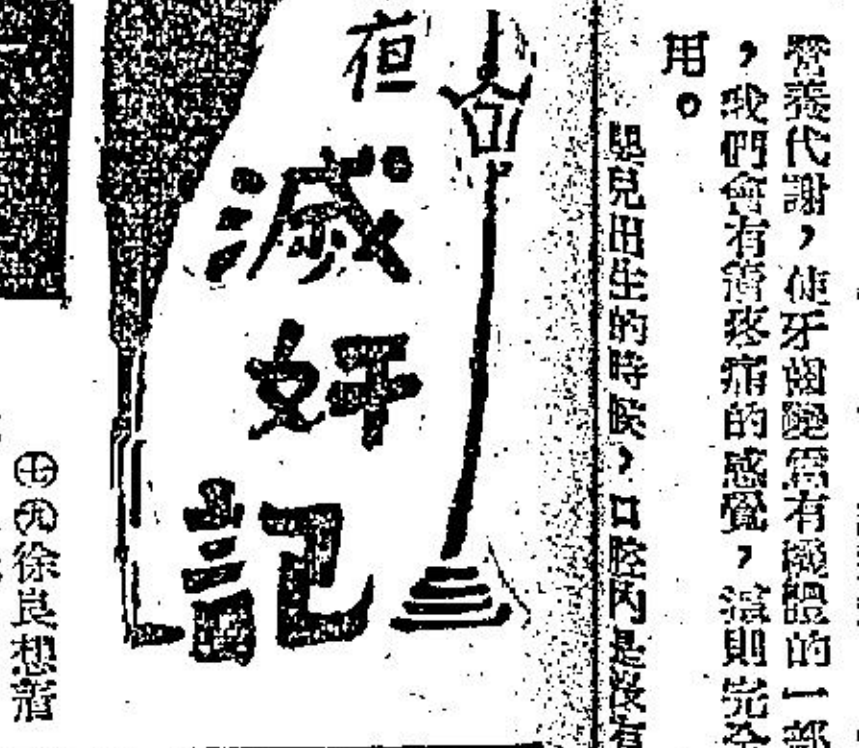 營養代謝，使牙齒變爲有機體的一部
，我們會有着疼痛的感覺，這則完全
用。
嬰兒出生的時候，口腔內是沒有
夜
滅奸記
㊆㊈徐良想着